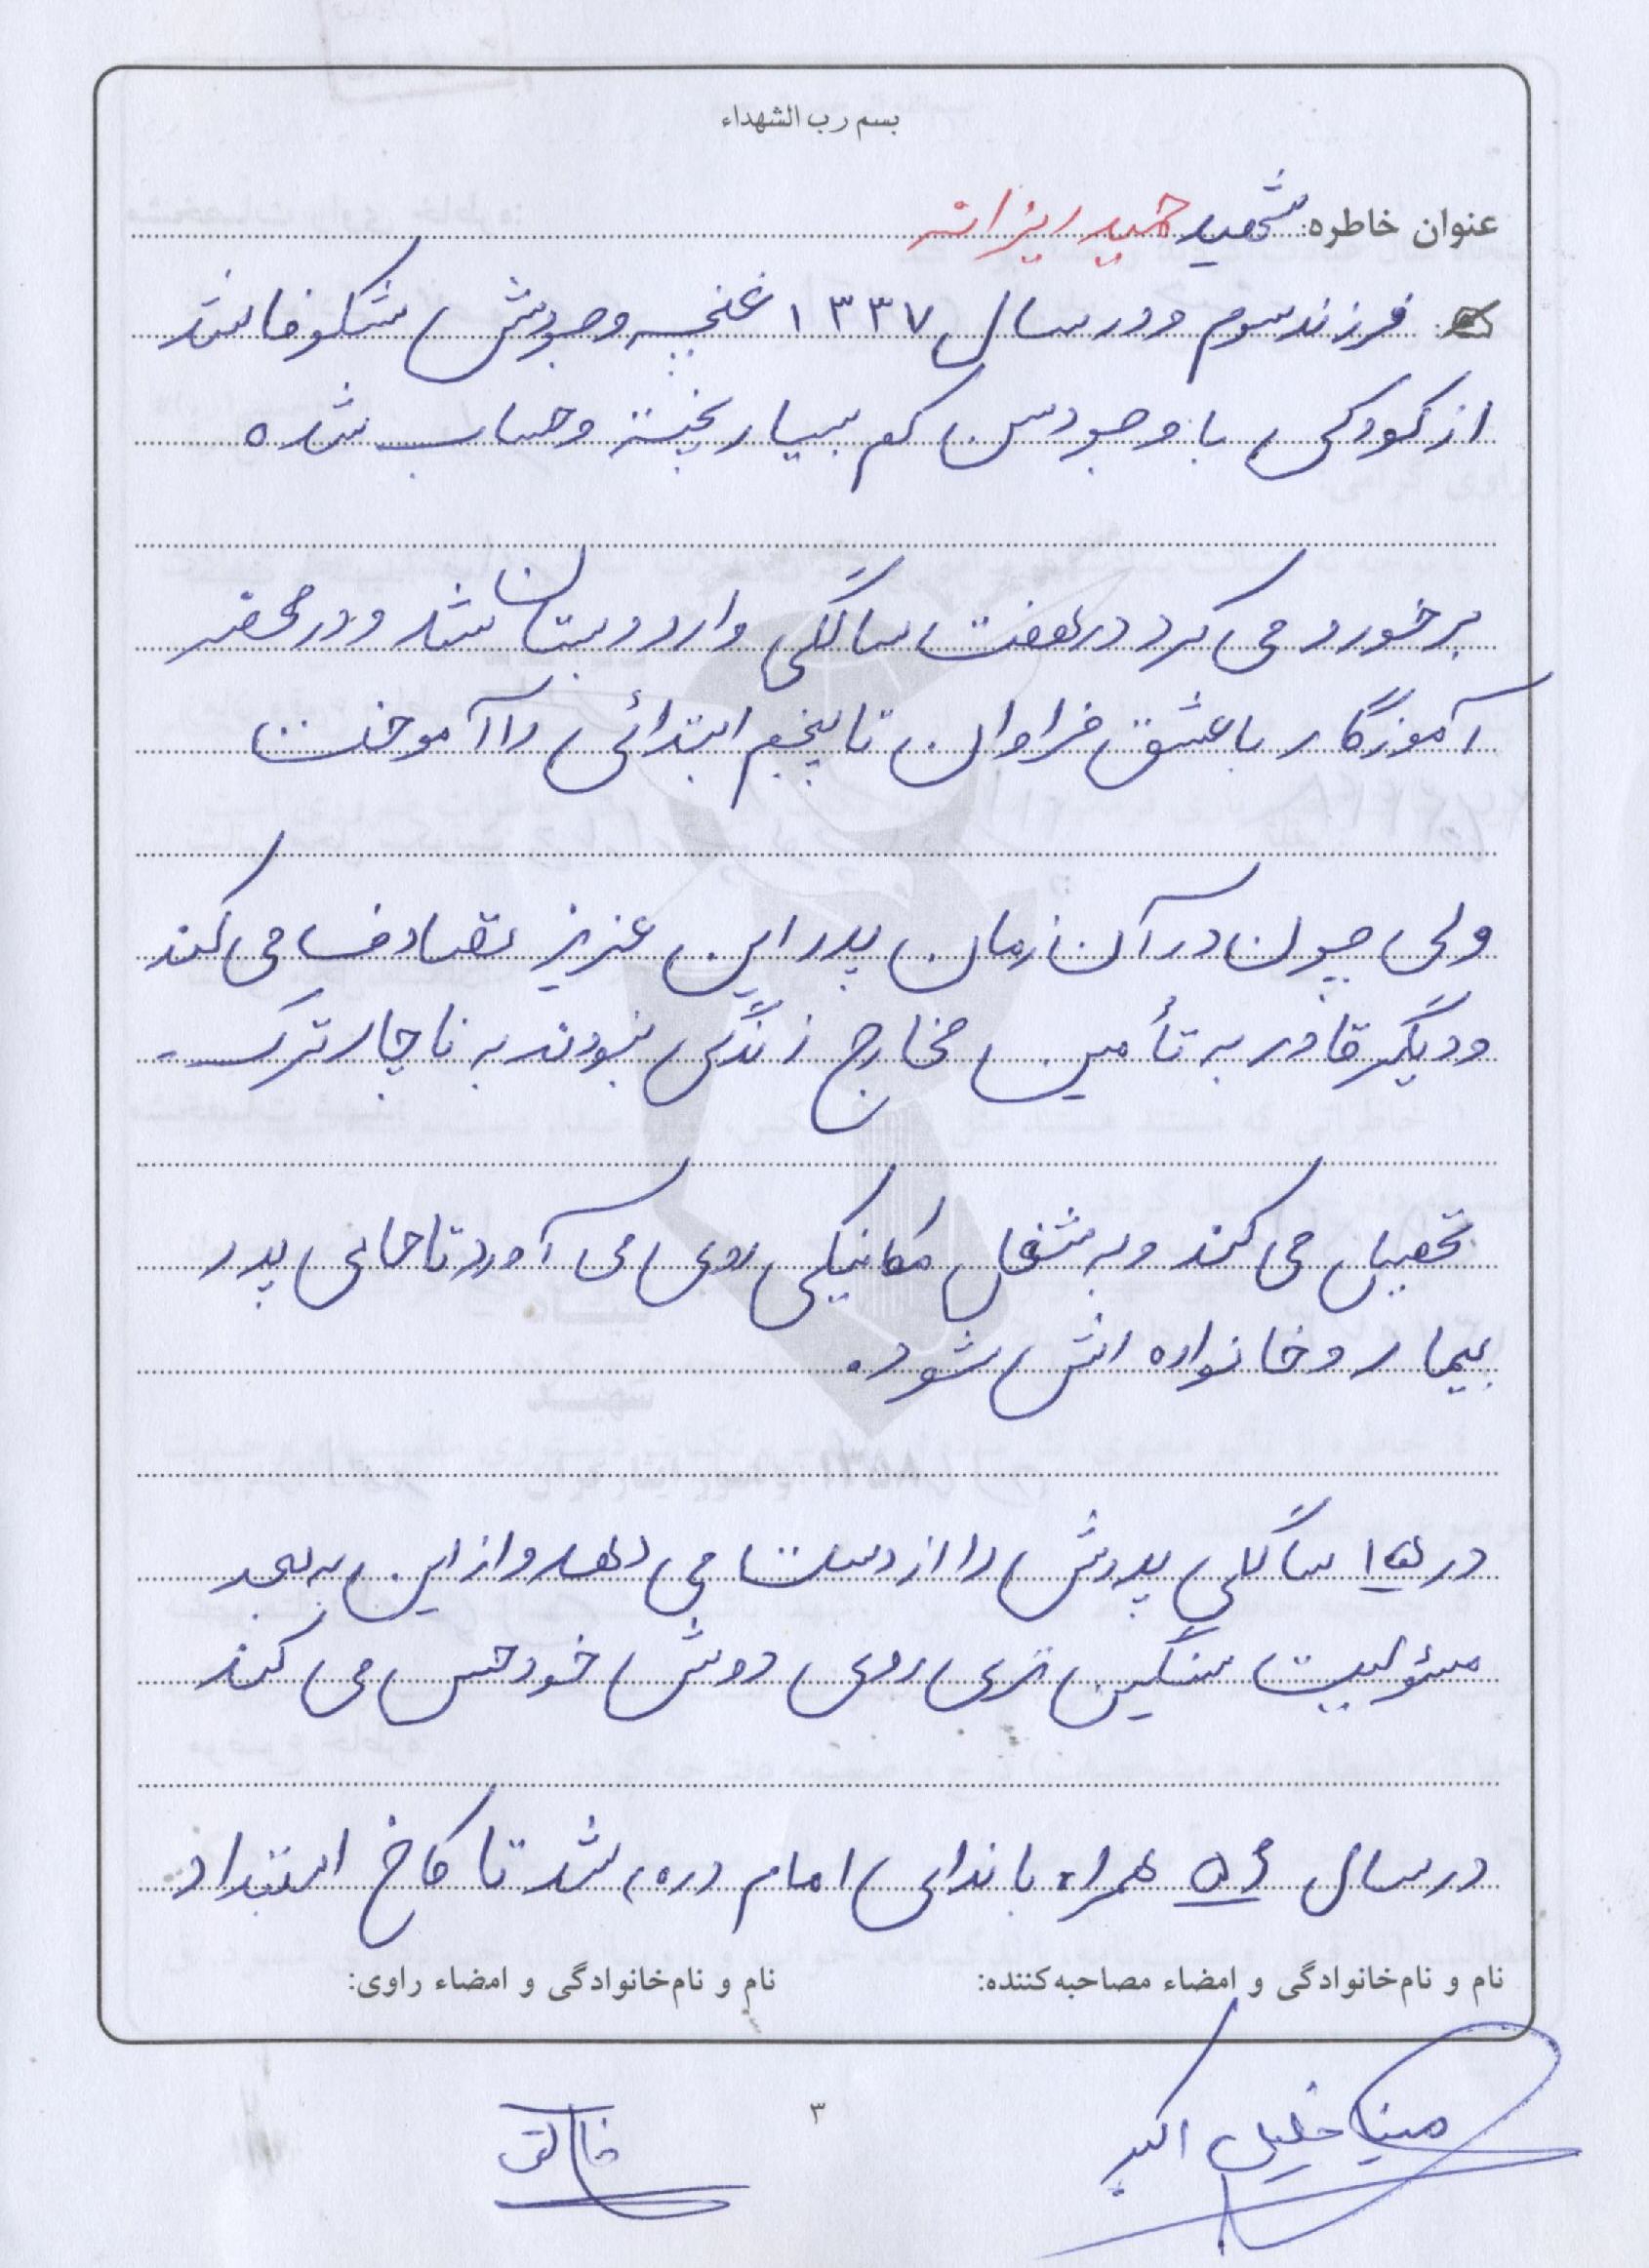 بسم رب الشهداء
عنوان خاطره: شهید حمید ریزانه
فرزند سوم و در سال ۱۳۳۷ غنچه وجودش شکوفا شد
از کودکی با وجود سن کم بسیار پخته و حساب شده
برخورد می کرد در هفت سالگی وارد دبستان شد و در محضر
آموزگار با عشق فراوان تا پنجم ابتدائی را آموخت
ولی چون در آن زمان پدر این عزیز تصادف می کند
و دیگر قادر به تأمین مخارج زندگی نبودند به ناچار ترک
تحصیل می کند و به شغل مکانیکی روی می آورد تا حامی پدر
بیمار و خانواده اش شود.
در ۱۵ سالگی پدرش را از دست می دهد و از این به بعد
مسئولیت سنگین تری روی دوش خود حس می کند
در سال ۵۶ همراه با ندای امام در شد تا کاخ استبداد
نام و نام‌خانوادگی و امضاء مصاحبه‌کننده:
نام و نام‌خانوادگی و امضاء راوی:
مینا خلیل اکبر
۳